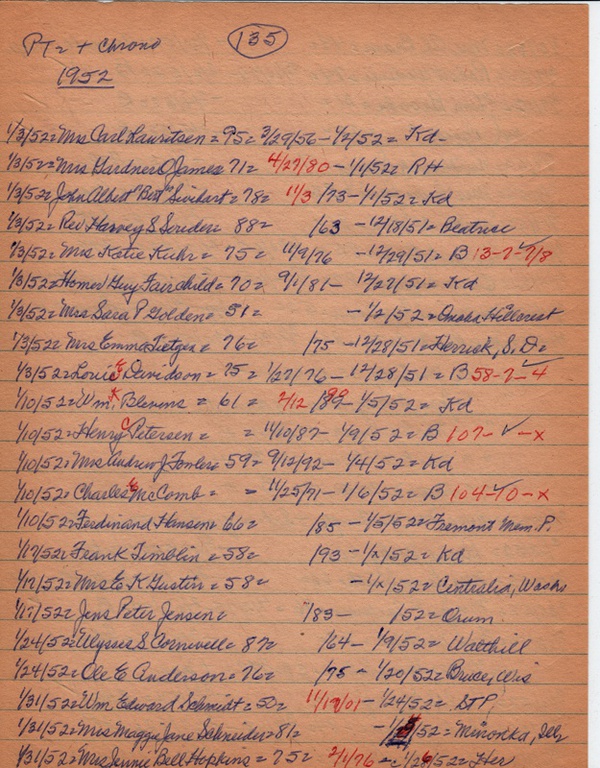 PT2 + Chrono 135
1952
1/3/52= Mrs Carl Lauritsen = 95= 3/29/56 - 1/2/52 = Kd-
1/3/52= Mrs Gardner O James 71= 4/27/80 - 1/1/52= RH
1/3/52= John Albert "Bert" = 78= 11/3/73 - 1/1/52= Kd
1/3/52= Rev Harvey S 88= /63 - 12/18/51= Beatrice
1/3/52= Mrs Katie Kuhr = 75= 11/9/76 - 12/29/51= B 13-7-7/8
1/3/52= Homer Guy Fairchild = 70= 9/1/81- 12/27/51= Kd
1/3/52= Mrs Sara P Golden= 51= -1/2/52= Omaha Hillcrest
1/3/52= Mrs Emma Tietgen = 76= /75 - 12/28/51= Herrick, S.D.
1/3/52= Louie Davidson = 75= 1/27/76 - 12/28/51= B 58-7-4
1/10/52= Wm. K Blevens = 61= 2/12/89 90 - 1/5/52= Kd
1/10/52= Henry C Petersen= = 11/10/87 - 1/9/52= B 107- ✓ -x
1/10/52= Mrs Andrew J Fowler= 59= 9/12/92 - 1/4/52= Kd
1/10/52= Charles McComb= = 11/25/71 - 1/6/52= B 104-10-x
1/10/52= Ferdinand Hansen= 66= /85 - 1/5/52= Fremont Mem. P.
1/17/52= Frank Timblin = 58= /93 - 1/x/52= Kd
1/17/52= Mrs E K Gustin = 58= -1/x/52= Centralia, Wash
1/17/52= Jens Peter Jensen= /83- /52= Orum
1/24/52= Ulysses S Cornwell= 87= /64- 1/9/52= Walthill
1/24/52= Ole E Anderson= 76= /75 - 1/20/52= Bruce, Wis
1/31/52= Wm Edward Schmidt= 50= 11/19/01 - 1/24/52= STP
1/31/52= Mrs Maggie Jane Schneider= 81= /52= Minooka, Ill
1/31/52= Mrs Jennie Bell Hopkins = 75= 2/1/76 - 1/26/52= Her